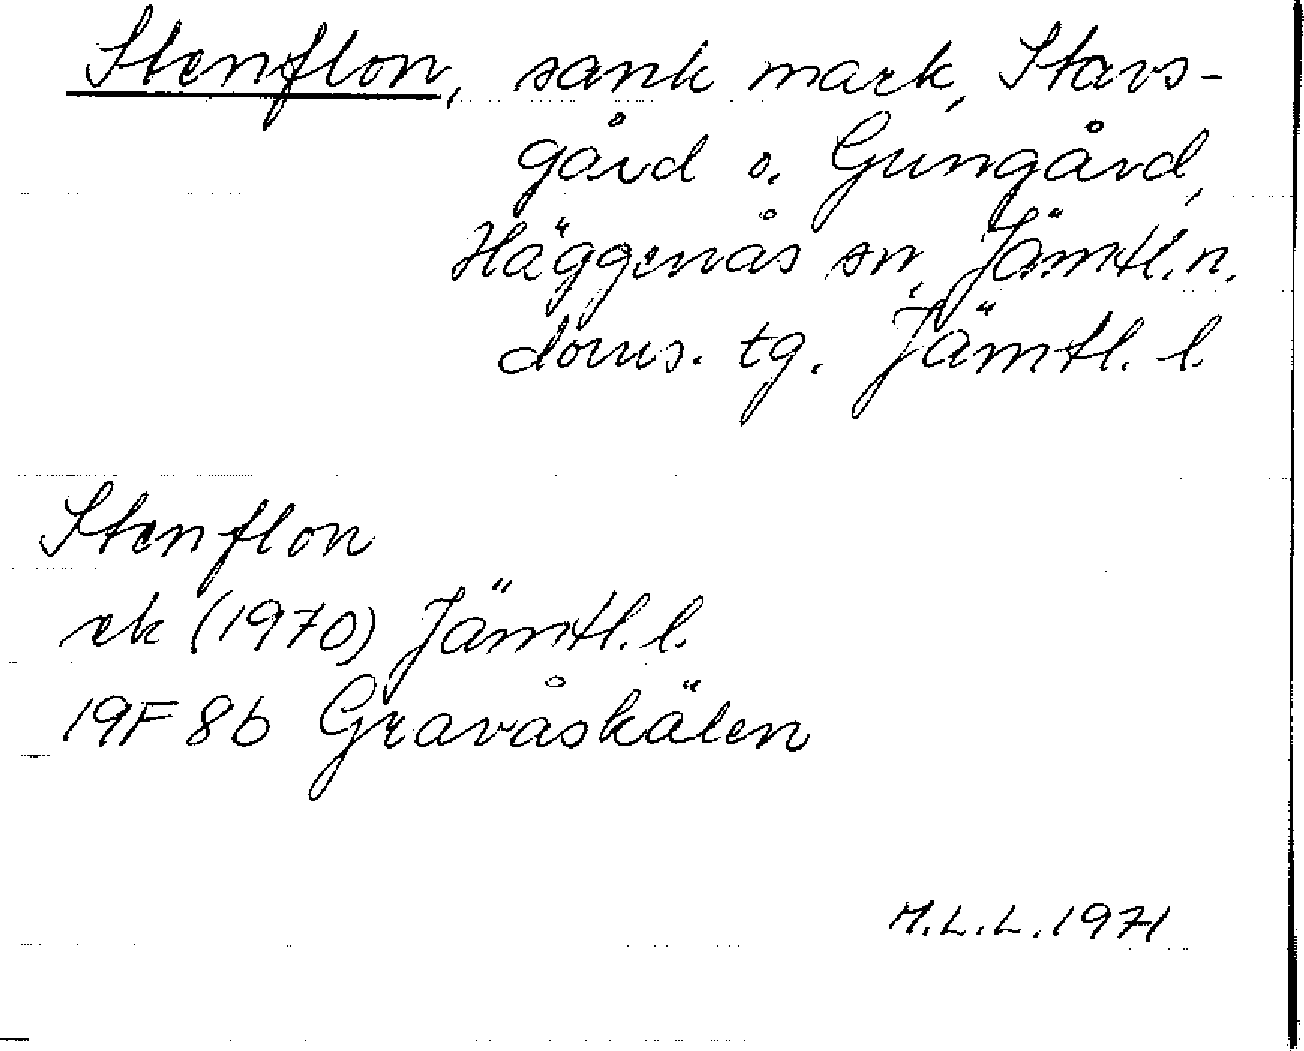 Stenflon, sank mark, Stavs-
gård o. Gungård,
Häggenås sn, Jämtl. n.
doms. tg. Jämtl. l.
Stenflon
ek (1970) Jämtl. l.
19F 8b Gravåskälen
M.L.L. 1971